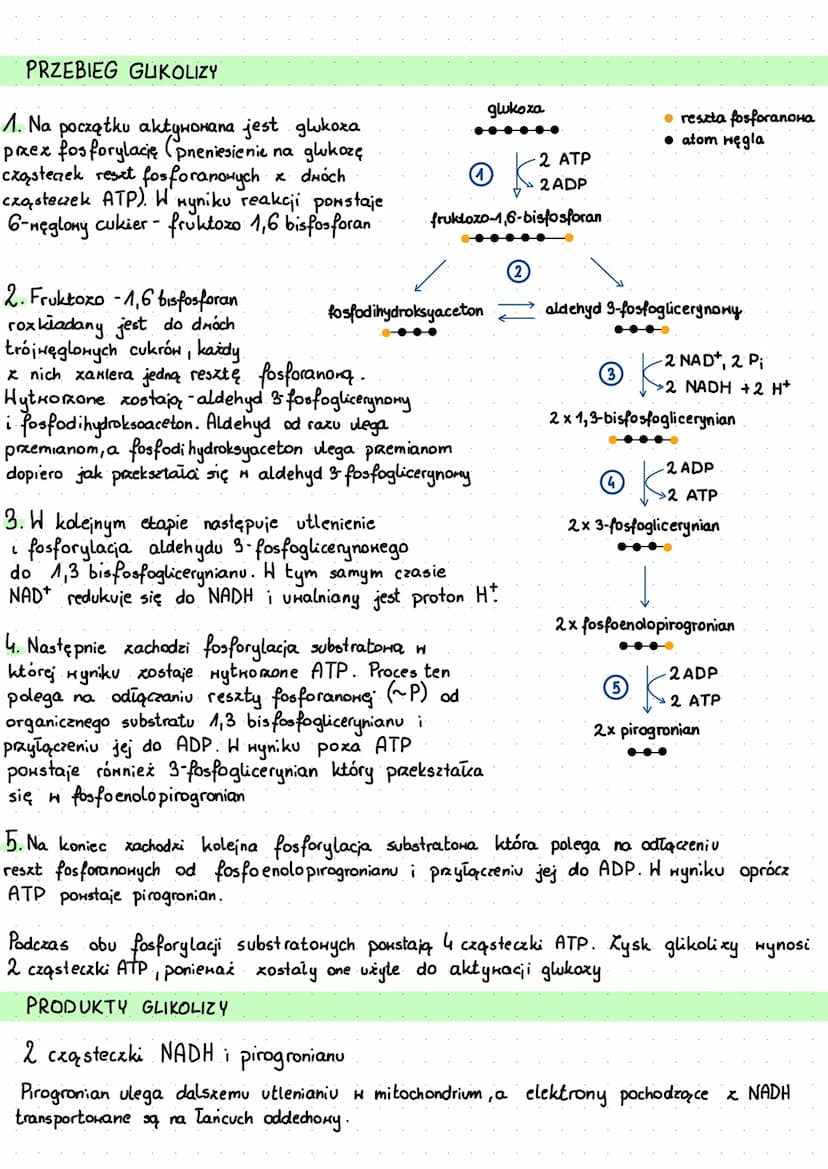 PRZEBIEG GLIKOLIZY
1. Na początku aktywowana jest glukoza
przez fosforylację (pneniesienie na glukozę
cząsteczek reszt fosforanowych z dwóch
cząsteczek ATP). W wyniku reakcji powstaje
6-węglowy cukier - fruktozo 1,6 bisfosforan
2. Fruktozo -1,6 bisfosforan
rozkładany jest do dwóch
trójwęglowych cukrów, każdy
z nich zawiera jedną resztę fosforanową.
Wytworzone zostają - aldehyd 3-fosfoglicerynowy
i fosfodihydroksoaceton. Aldehyd od razu ulega
przemianom, a fosfodihydroksyaceton ulega przemianom
dopiero jak przekształci się w aldehyd 3-fosfoglicerynowy
3. W kolejnym etapie następuje utlenienie
i fosforylacja aldehydu 3-fosfoglicerynowego
do 1,3 bisfosfoglicerynianu. W tym samym czasie
NAD⁺ redukuje się do NADH i uwalniany jest proton H⁺.
4. Następnie zachodzi fosforylacja substratową w
której wyniku zostaje wytworzone ATP. Proces ten
polega na odłączaniu reszty fosforanowej (~P) od
organicznego substratu 1,3 bisfosfoglicerynianu i
przyłączeniu jej do ADP. W wyniku poza ATP
powstaje również 3-fosfoglicerynian który przekształca
się w fosfoenolopirogronian
glukoza
reszta fosforanowa
atom węgla
1
2 ATP
2 ADP
fruktozo-1,6-bisfosforan
2
fosfodihydroksyaceton
aldehyd 3-fosfoglicerynowy
3
2 NAD⁺, 2 Pi
2 NADH + 2 H⁺
2 x 1,3-bisfosfoglicerynian
4
2 ADP
2 ATP
2 x 3-fosfoglicerynian
2 x fosfoenolopirogronian
5
2 ADP
2 ATP
2x pirogronian
5. Na koniec zachodzi kolejna fosforylacja substratowa która polega na odłączeniu
reszt fosforanowych od fosfoenolopirogronianu i przyłączeniu jej do ADP. W wyniku oprócz
ATP powstaje pirogronian.
Podczas obu fosforylacji substratowych powstają 4 cząsteczki ATP. Zysk glikolizy wynosi
2 cząsteczki ATP, ponieważ zostały one użyte do aktywacji glukozy
PRODUKTY GLIKOLIZY
2 cząsteczki NADH i pirogronianu
Pirogronian ulega dalszemu utlenianiu w mitochondrium, a elektrony pochodzące z NADH
transportowane są na łańcuch oddechowy.